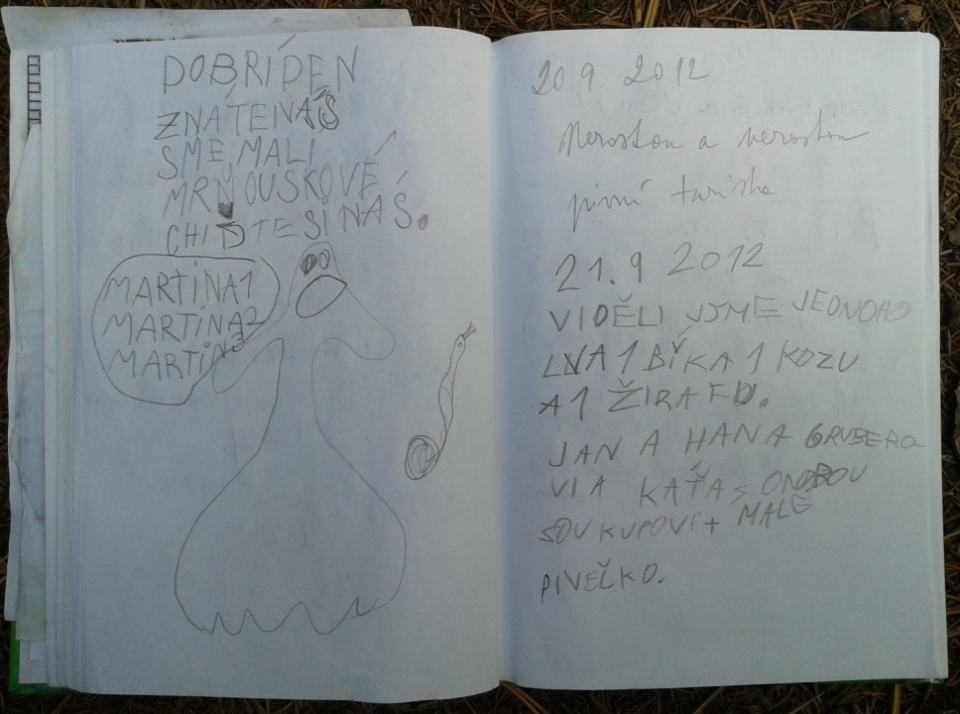 DOBRÍDEN
ZNÁTENÁŠ
SME MALI
MRŇOUSKOVÉ
CHIĎTESI NÁŠ.
MARTINA1
MARTINA2
MARTIN3
20 9. 2012
a
pivní turistka
21.9 2012
VIDĚLI JSME JEDNOHO
LVA 1 BÍKA 1 KOZU
A 1 ŽIRAFU.
JAN A HANA GRUBERO
VI A KAŤA S ONDROU
SOUKUPOVÍ + MALÉ
PIVEČKO.